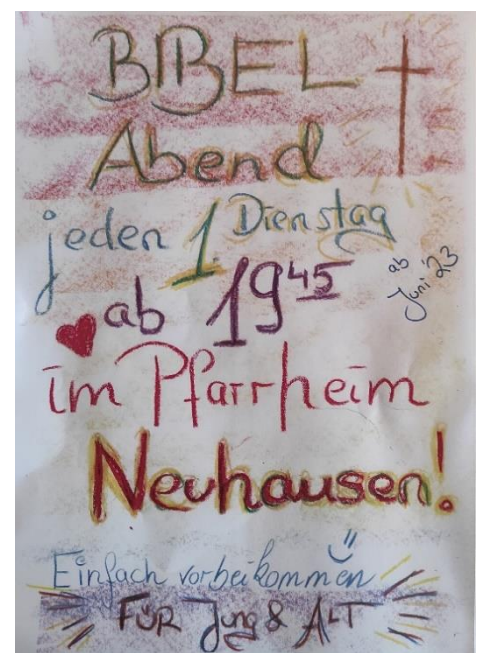 BIBEL
Abend
jeden 1. Dienstag
ab Juni 23
ab 19 45
im Pfarrheim
Neuhausen!
Einfach vorbeikommen
FÜR Jung & ALT